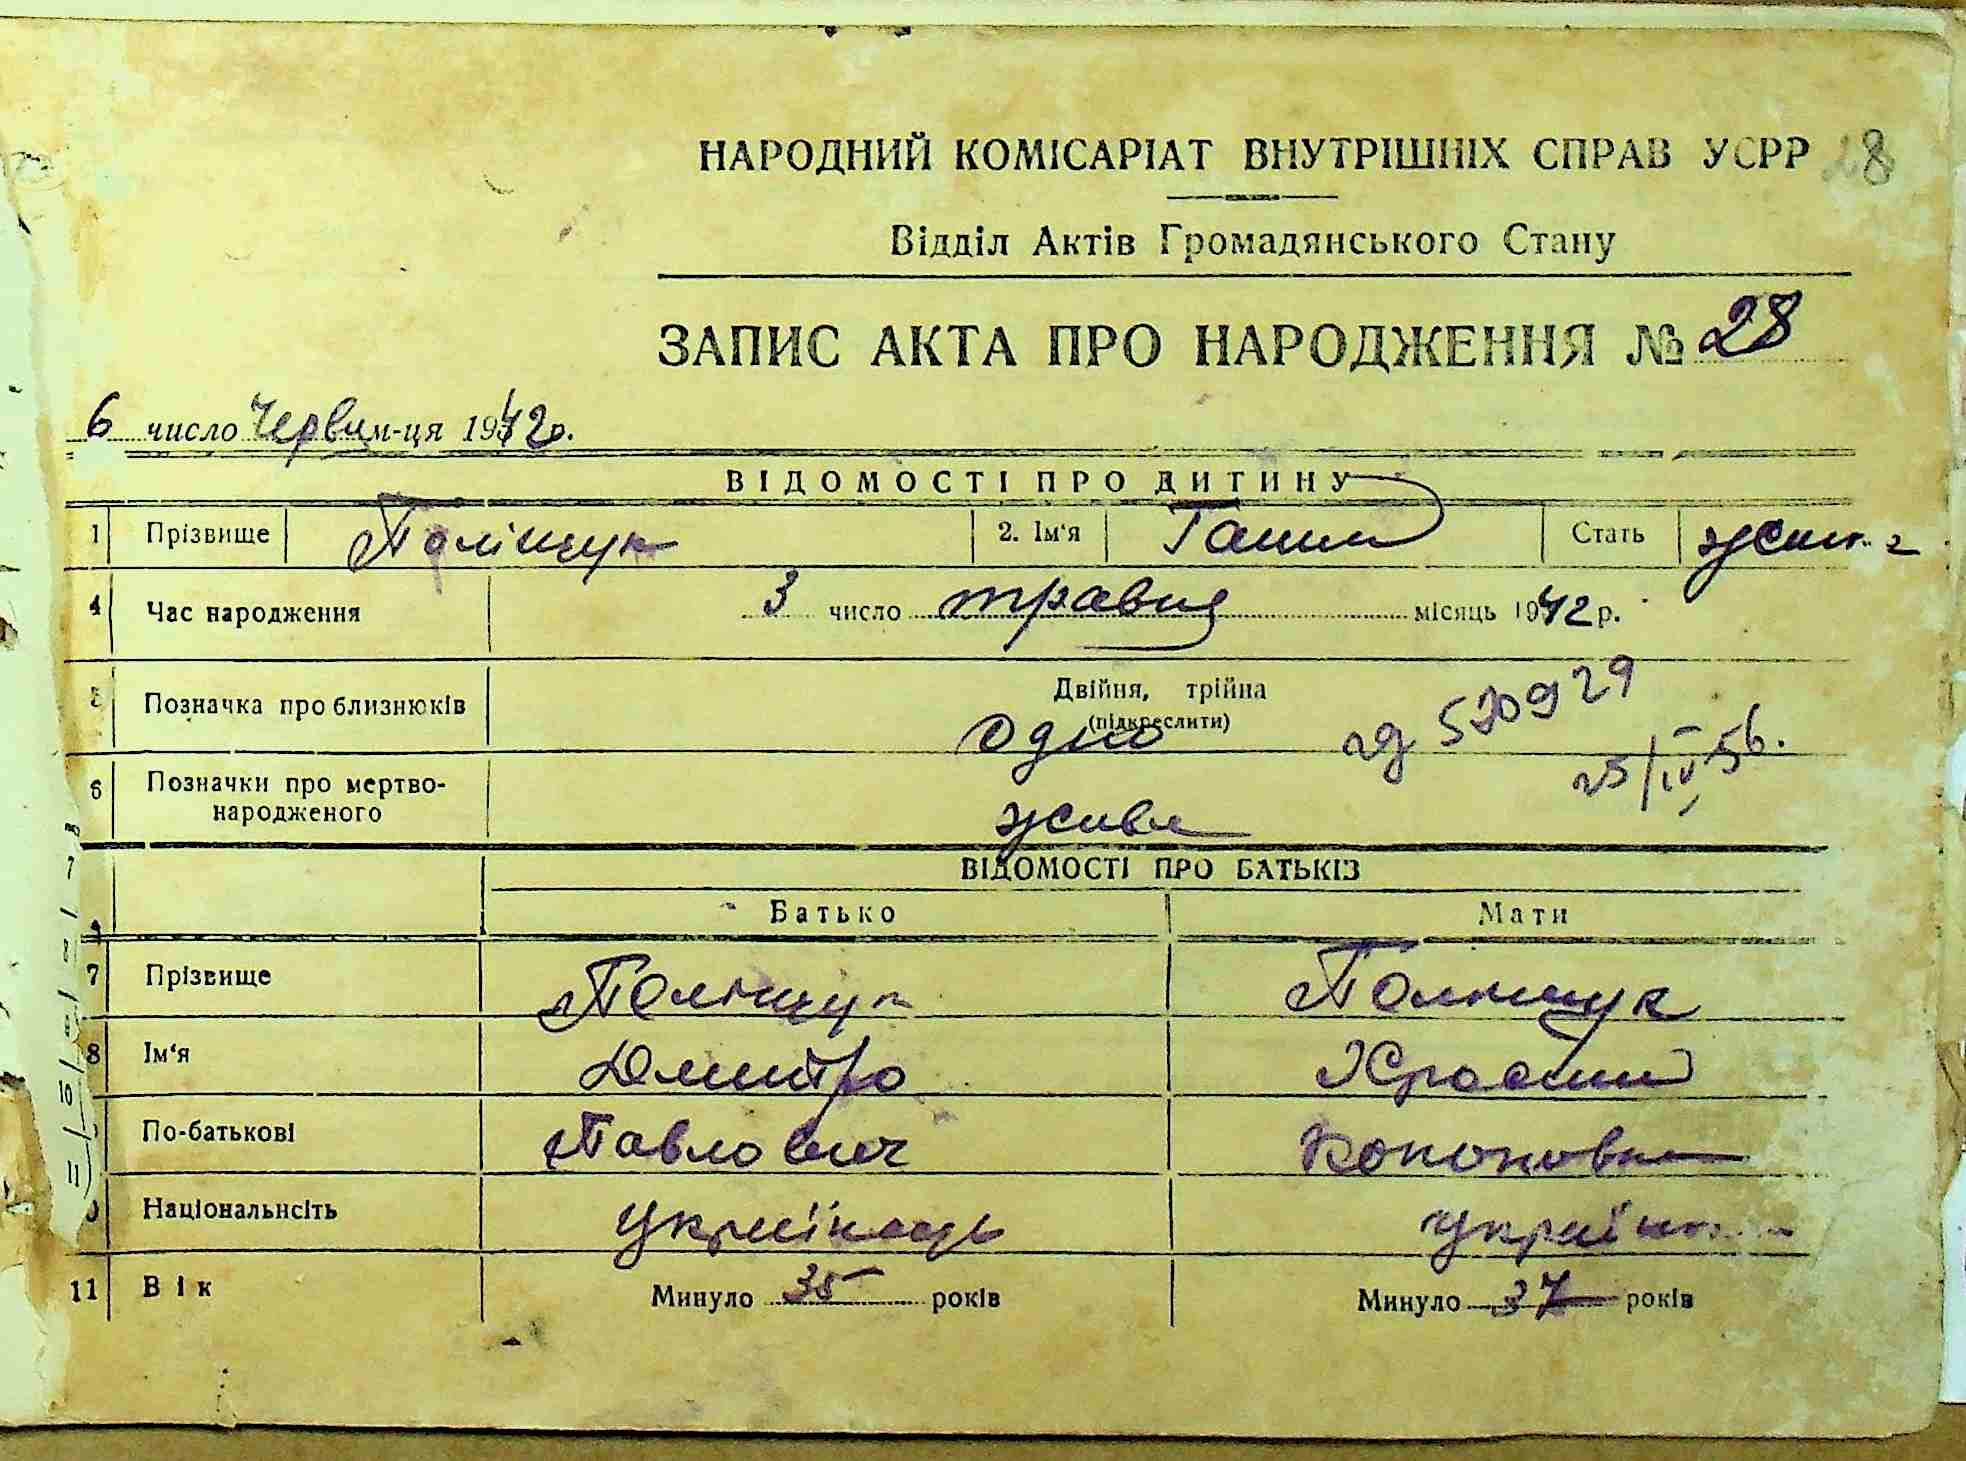 НАРОДНИЙ КОМІСАРІАТ ВНУТРІШНІХ СПРАВ УСРР 28
Відділ Актів Громадянського Стану
ЗАПИС АКТА ПРО НАРОДЖЕННЯ № 28
6 число Червня м-ця 1942 р.
ВІДОМОСТІ ПРО ДИТИНУ
1 Прізвище Поліщук 2. Ім'я Ганна Стать жіноча
4 Час народження 3 число травня місяць 1942 р.
5 Позначка про близнюків Двійня, трійна
(підкреслити)
одно 520929
25/IV 56.
6 Позначки про мертво-
народженого
жива
ВІДОМОСТІ ПРО БАТЬКІВ
Батько Мати
7 Прізвище Поліщук Поліщук
8 Ім'я Дмитро
По-батькові Павлович Кононовна
Національнсіть українець українка
11 Вік Минуло 35 років Минуло 37 років